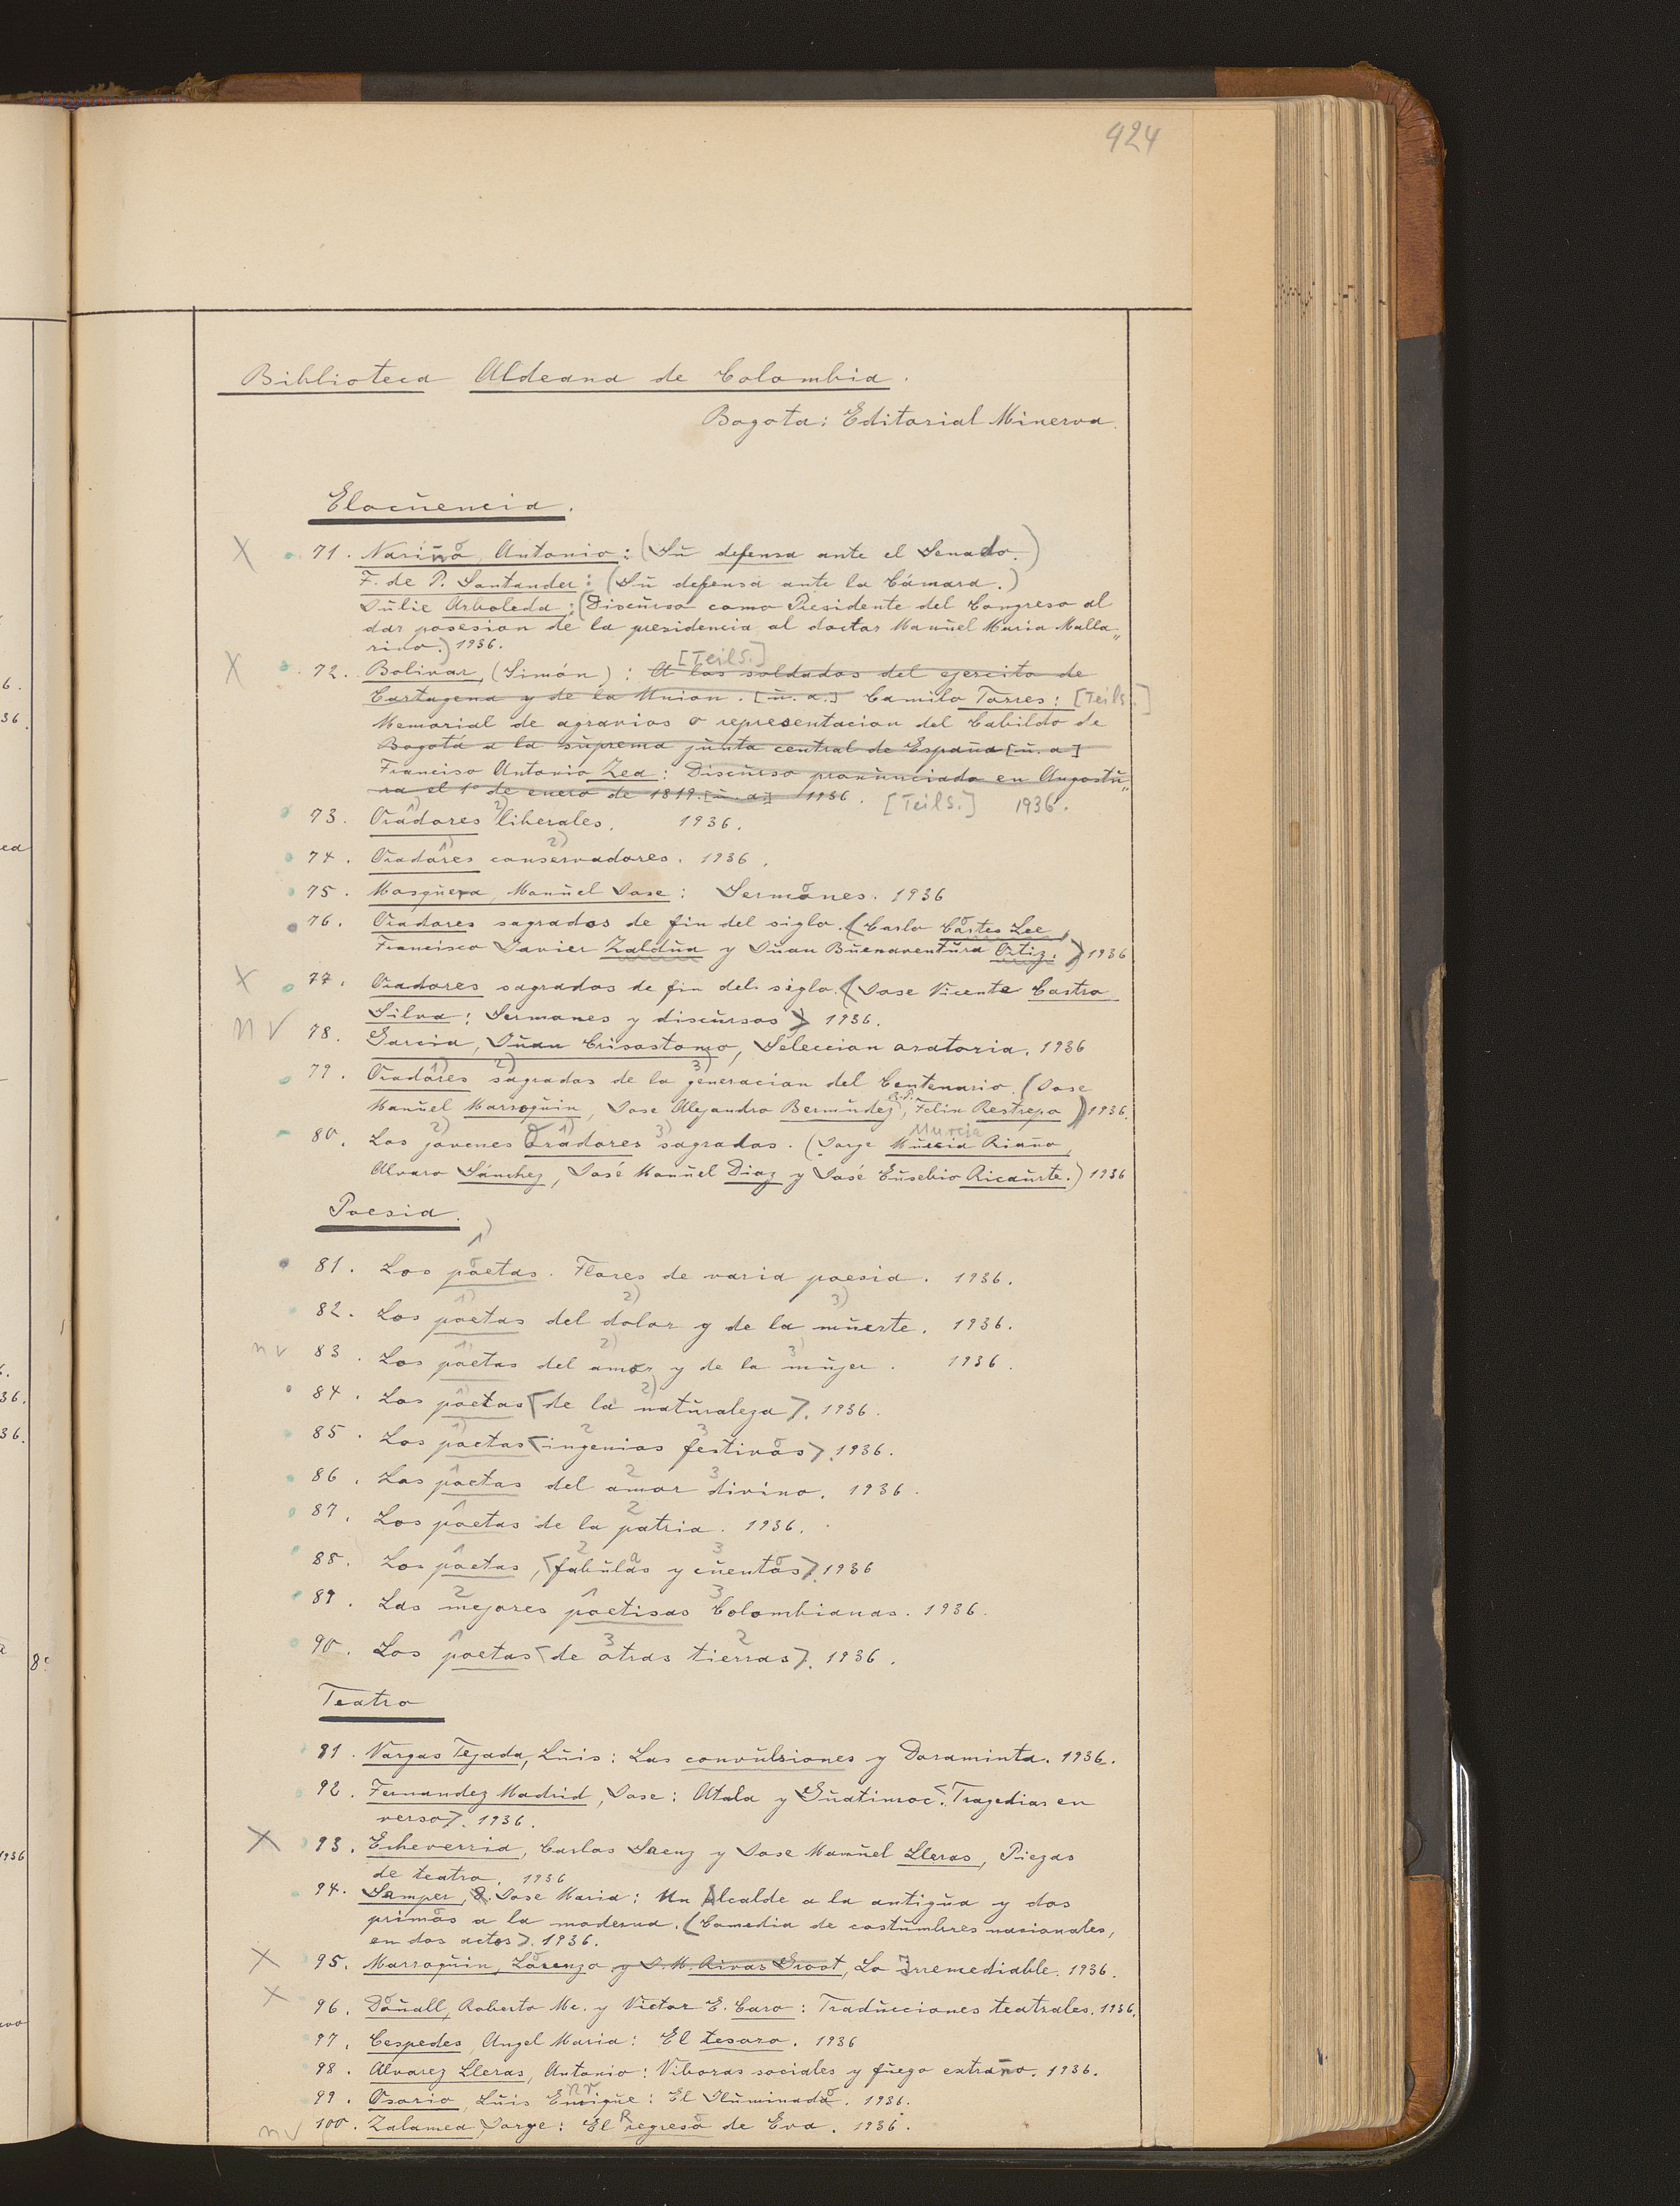 424
Biblioteca Aldeana de Colombia.
Bogota: Editorial Minerva.
Elocuencia.
X 71. Nariño, Antonio: (Su defensa ante el Senado.)
F. de P. Santander: (Su defensa ante la Cámara.)
Julie Arboleda: (Discurso como Presidente del Congreso al
dar posesion de la presidencia al doctor Manuel Maria Malla„
rino.) 1936.
[Teils.]
X 72. Bolivar, (Simón): A los soldados del ejercito de
Cartagena y de la Union. [u. a.] Camilo Torres: [Teils.]
Memorial de agravios o representacion del Cabildo de
Bogotá a la suprema junta central de España [u. a]
Franciso Antonio Zea: Discurso pronunciado en Angostu„
ra el 1º de enero de 1819. [u. a] 1936. [Teils.] 1936.
1) 2)
73. Oradores liberales. 1936.
1) 2)
74. Oradores conservadores. 1936.
75. Mosquera, Manuel Jose: Sermones. 1936
76. Oradores sagrados de fin del siglo. (Carlo Cortes Lee,
Francisco Javier Zaldua y Juan Buenaventura Ortiz.) 1936
X 77. Oradores sagrados de fin del siglo. (Jose Vicente Castro
Silva: Sermones y discursos) 1936.
n v 78. Garcia, Juan Crisostomo, Seleccion oratoria. 1936
1) 2) 3)
79. Oradores sagrados de la generacion del Centenario. (Jose
Manuel Marroquin, Jose Alejandro Bermudez, R.P. Felix Restrepo) 1936.
2) 1) 3) Murcia
80. Los jovenes Oradores sagrados. (Jorge Murcia Riaño,
Alvaro Sánchez, José Manuel Diaz y José Eusebio Ricaurte.) 1936
Poesia.
1)
81. Los poetas. Flores de varia poesia. 1936.
1) 2) 3)
82. Los poetas del dolor y de la muerte. 1936.
1) 2) 3)
n v 83. Los poetas del amor y de la mujer. 1936.
1) 2)
84. Los poetas <de la naturaleza>. 1936.
1) 2 3
85. Los poetas <ingenios festivos>. 1936.
1 2 3
86. Los poetas del amor divino. 1936.
1 2
87. Los poetas de la patria. 1936.
1 2 3
88. Los poetas, <fabulas y cuentos>. 1936
2 1 3
89. Las mejores poetisas Colombianas. 1936.
1 3 2
90. Los poetas <de otras tierras>. 1936.
Teatro
81. Vargas Tejada, Luis: Las convulsiones y Doraminta. 1936.
92. Fernandez Madrid, Jose: Atala y Guatimoc. <Tragedias en
verso>. 1936.
X 93. Echeverria, Carlos Saenz y Jose Manuel Lleras, Piezas
de teatro. 1936
94. Samper, Jose Maria: Un Alcalde a la antigua y dos
primos a la moderna. (Comedia de costumbres nacionales,
en dos actos). 1936.
X 95. Marroquin, Lorenzo y J. M. Rivas Groot, Lo Irremediable. 1936.
X 96. Douall, Roberto Mc. y Victor E. Caro: Traducciones teatrales. 1936.
97. Cespedes, Angel Maria: El tesoro. 1936
98. Alvarez Lleras, Antonio: Viboras sociales y fuego extraño. 1936.
99. Osorio, Luis Enrique: El Iluminado. 1936.
n v 100. Zalamea, Jorge: El Regreso de Eva. 1936.